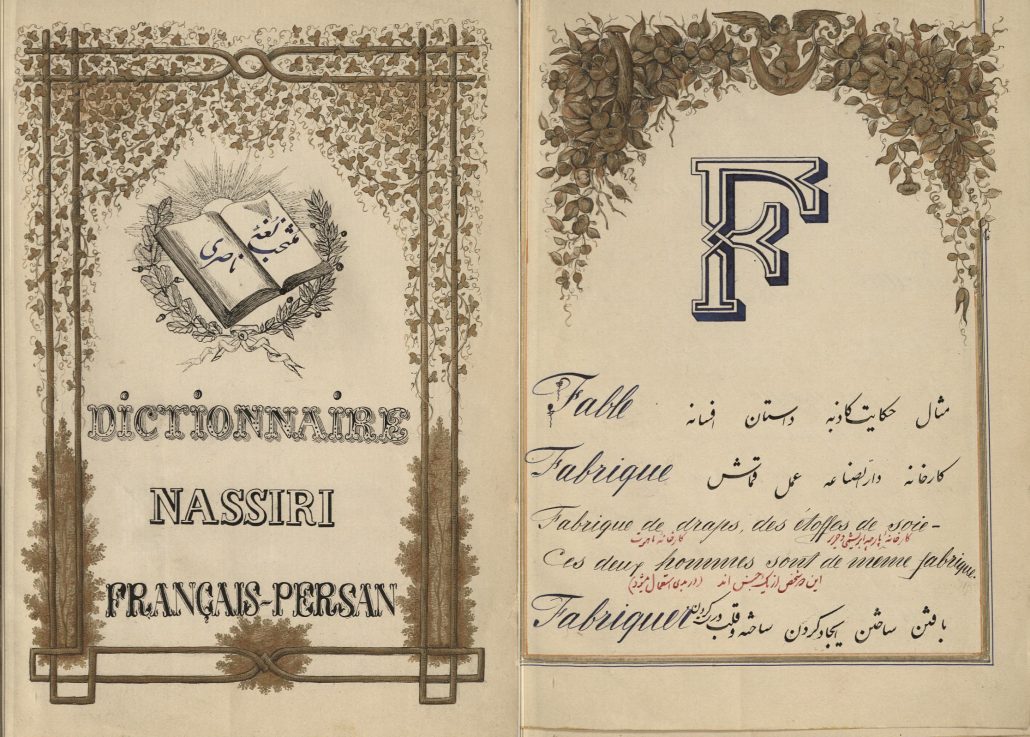 ناصری
DICTIONNAIRE
NASSIRI
FRANÇAIS-PERSAN
F
Fable مثال حکایت کاذبه داستان افسانه
Fabrique کارخانه دارالصناعه عمل قماش
Fabrique de draps, des étoffes de soie -
کارخانه ماهوت کارخانه پارچه ابریشمی و حریر
Ces deux hommes sont de meme fabrique.
این دو شخص از یک جنس اند
Fabriquer بافتن ساختن ایجاد کردن ساخته و قلب